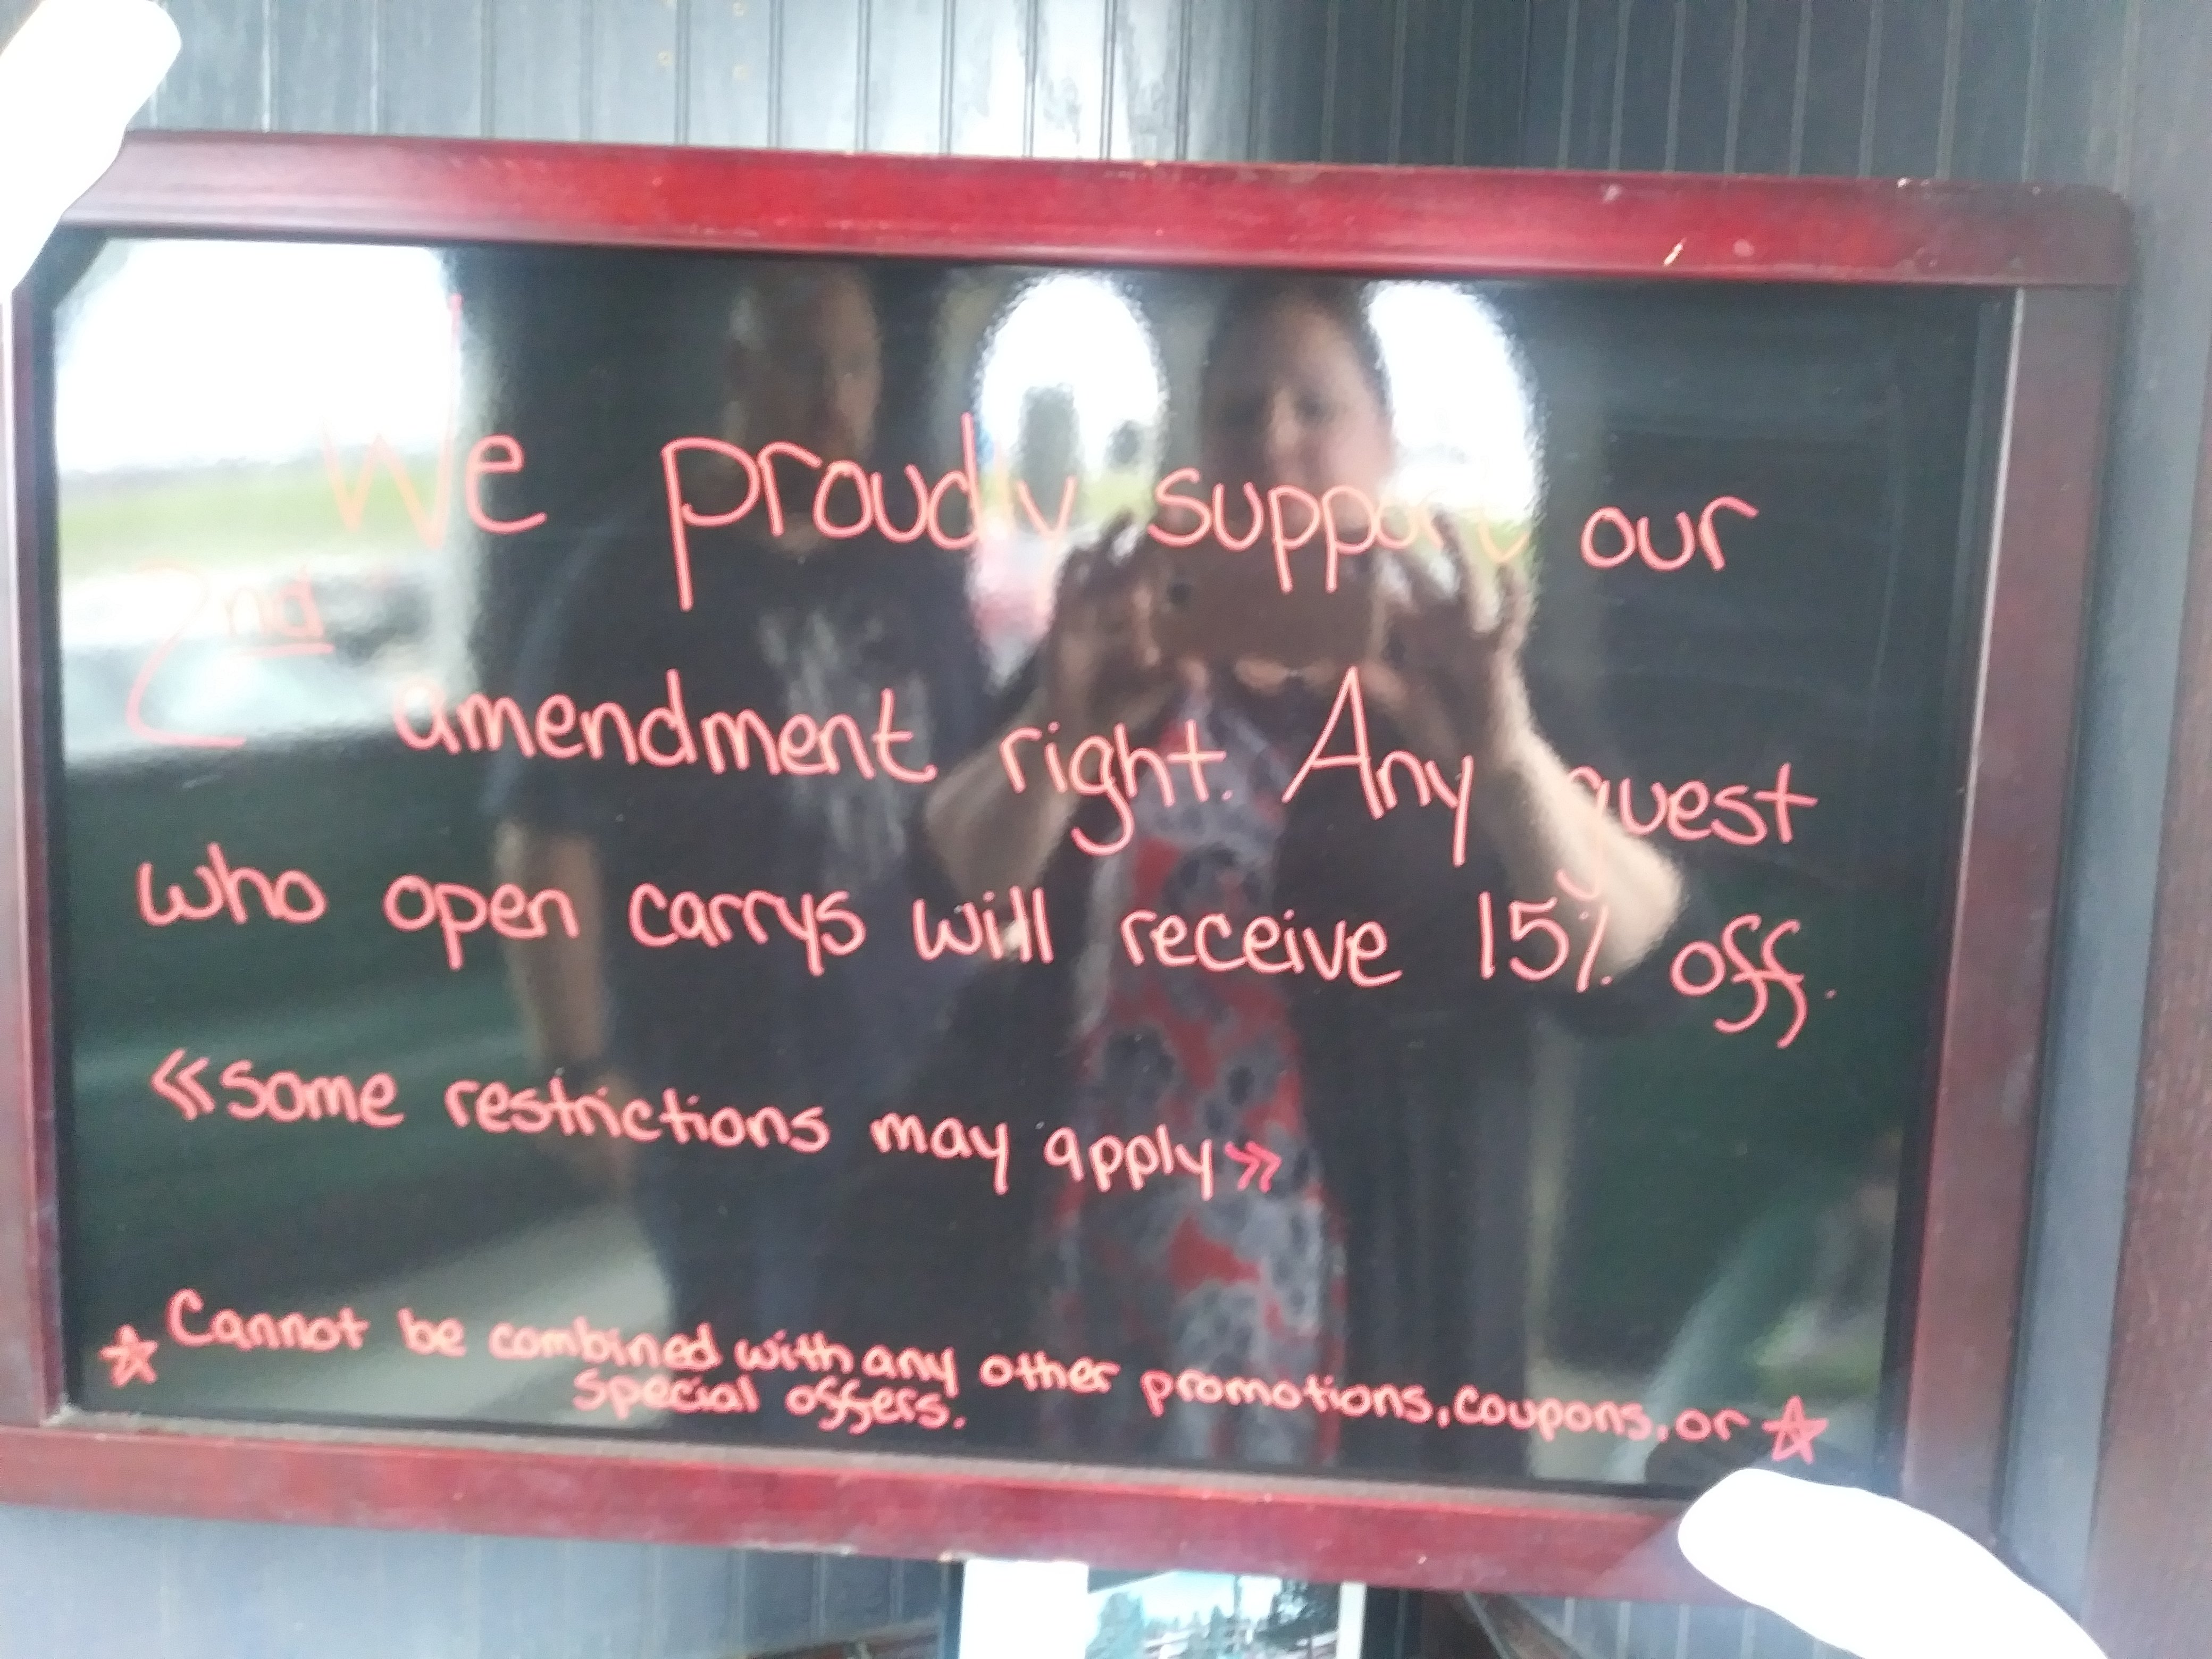 We proudly support our
2nd amendment right. Any guest
who open carrys will receive 15% off.
«some restrictions may apply»
☆ Cannot be combined with any other promotions, coupons, or ☆
special offers.